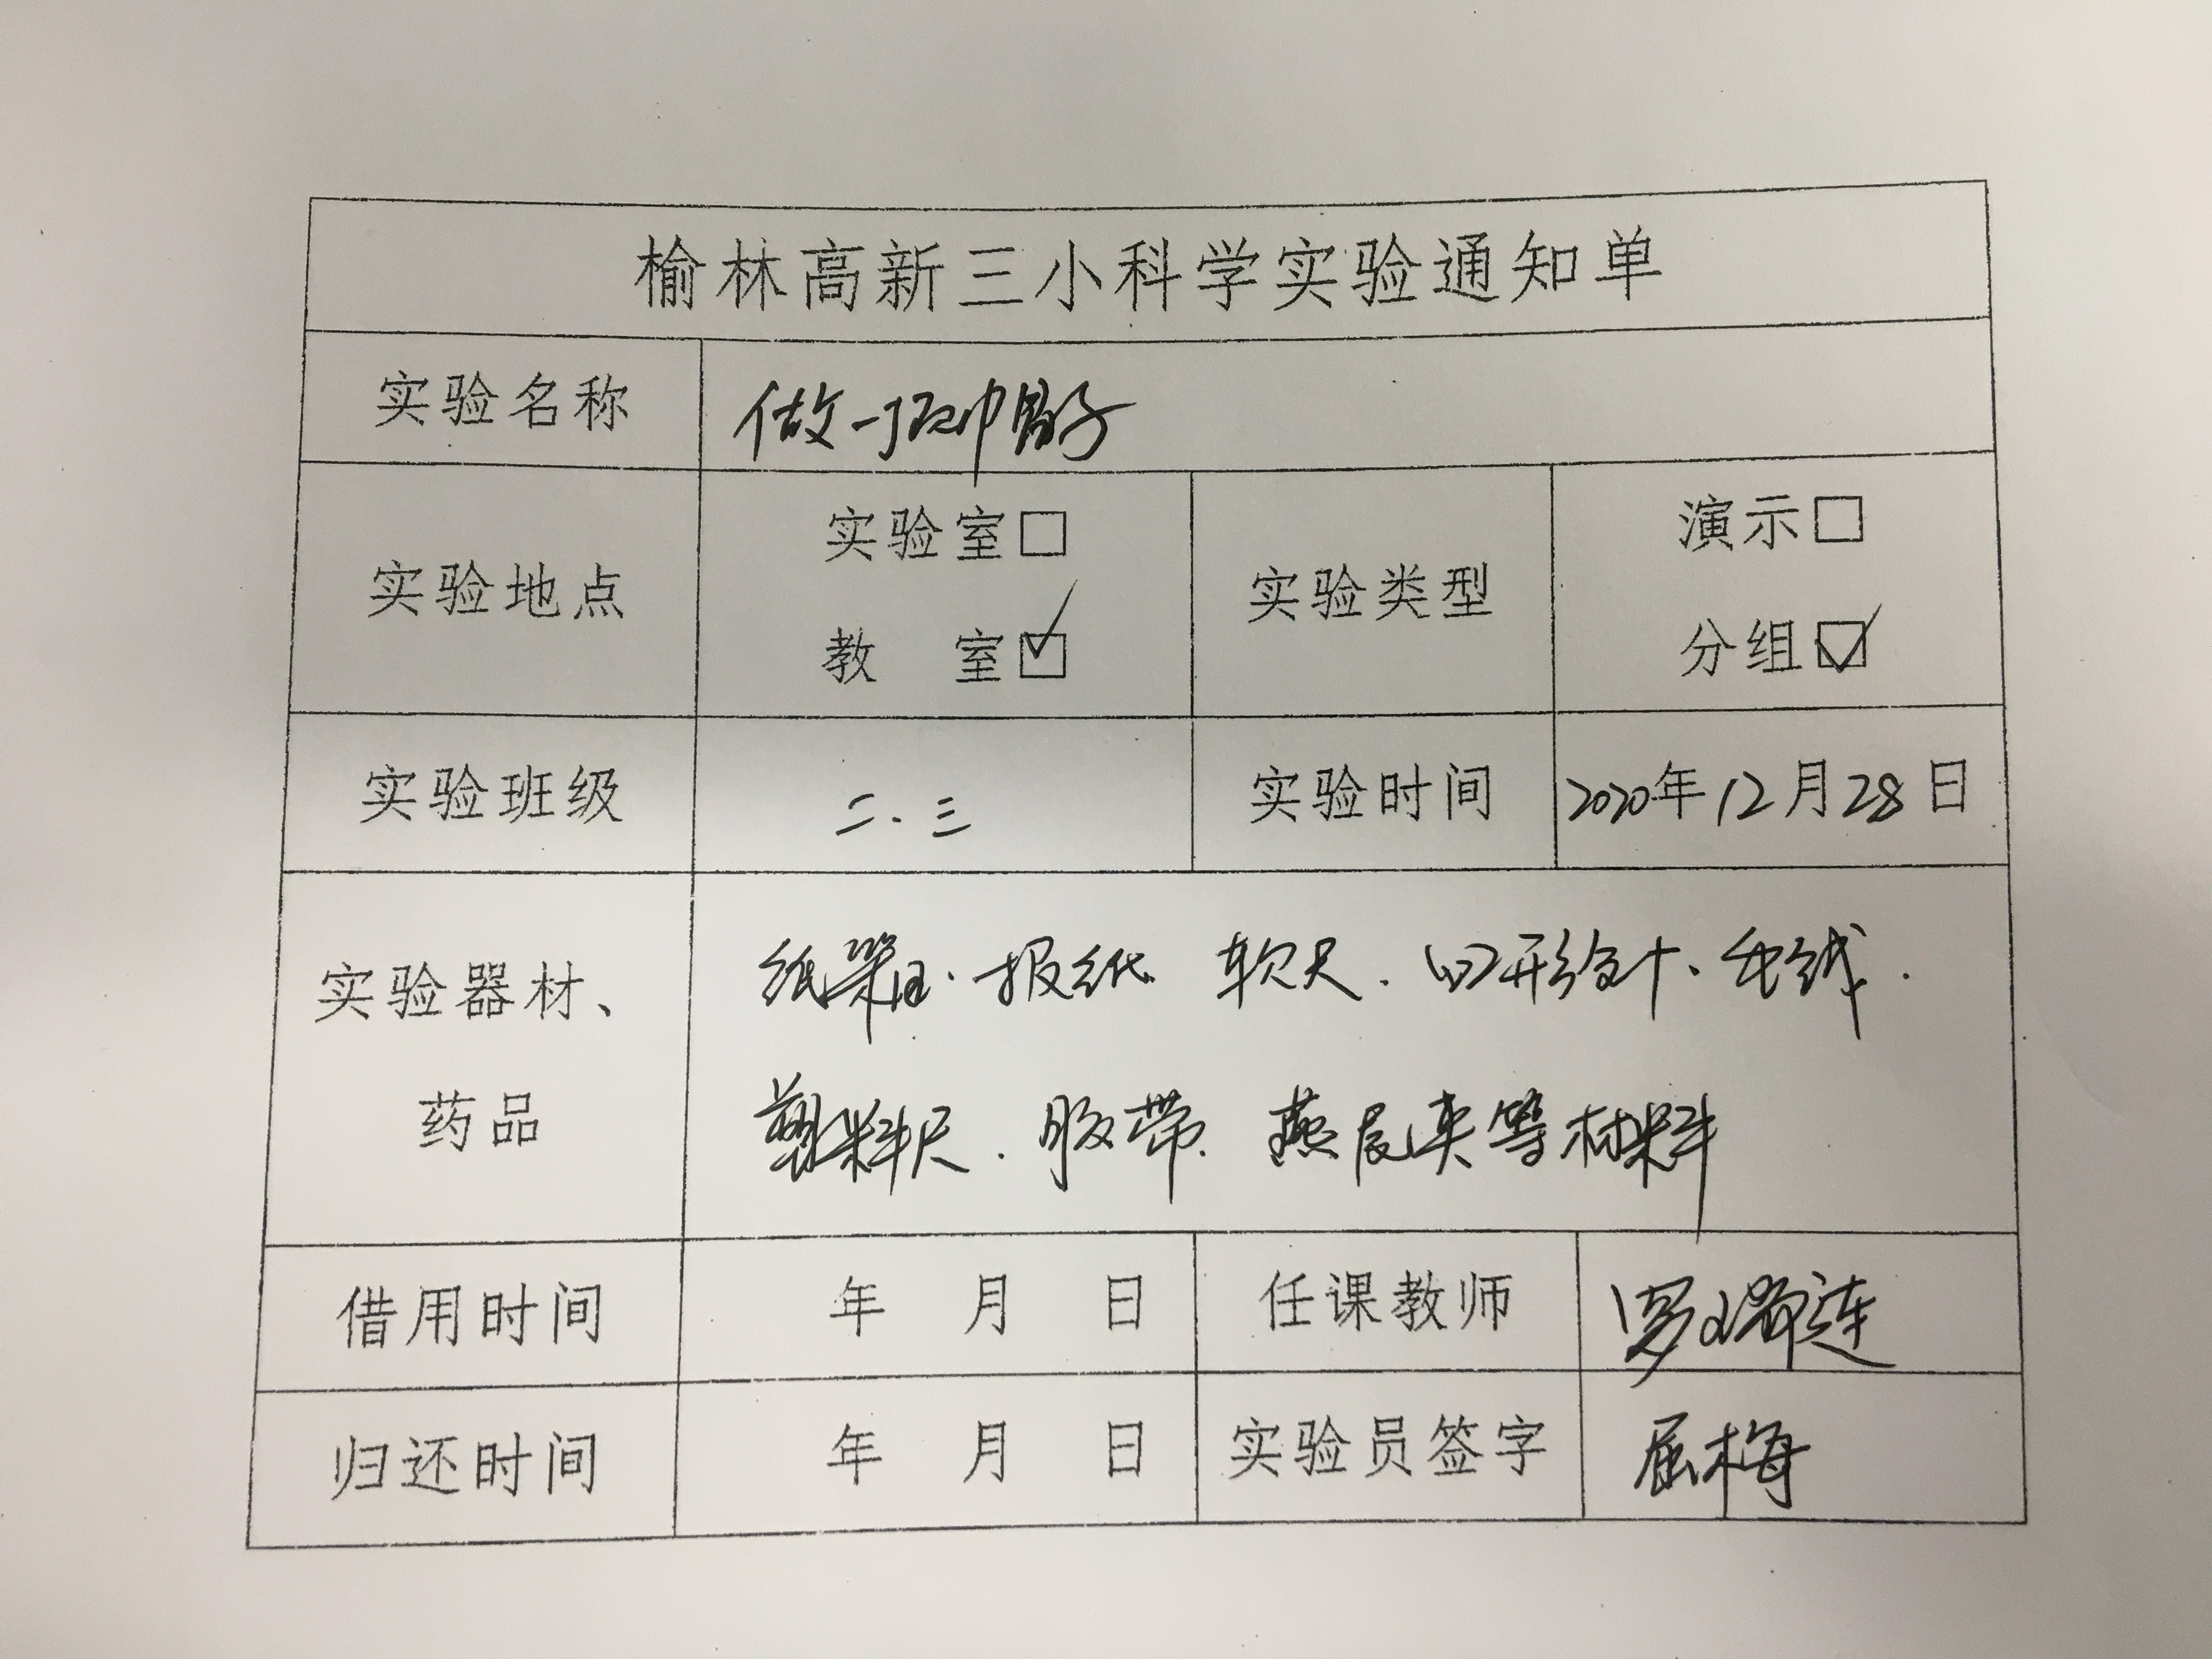 榆林高新三小科学实验通知单
实验名称 做一顶帽子
实验地点 实验室□ 教 室☑ 实验类型 演示□ 分组☑
实验班级 二.三 实验时间 2020年12月28日
实验器材、药品 报纸 软尺.回形针、毛线.
塑料尺.胶带.燕尾夹等材料
借用时间 年 月 日 任课教师 罗瑞连
归还时间 年 月 日 实验员签字 屈梅